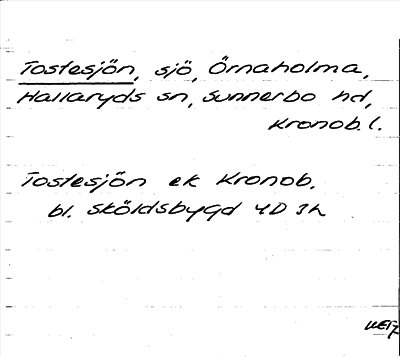 Tostesjön, sjö, Örnaholma,
Hallaryds sn, Sunnerbo hd,
Kronob. l.
Tostesjön ek Kronob.
bl. Sköldsbygd 4D 3h